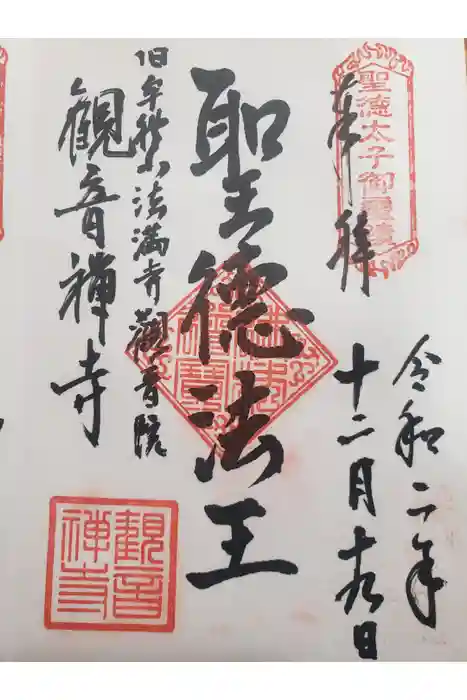 奉拝
聖徳太子御霊蹟
令和二年
十二月十九日
聖徳法王
法満寺觀音院
観音禅寺
觀音禅寺